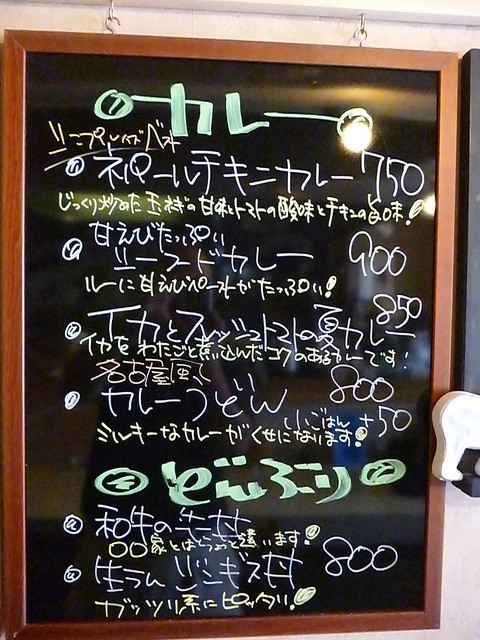 カレー
シンプルイズベスト
ネパールチキンカレー 750
じっくり炒めた玉ネギの甘味とトマトの酸味とチキンの旨味!
甘えびたっぷり
シーフードカレー 900
ルーに甘えびペーストがたっぷり!
850
イカとフレッシュトマトの夏カレー
イカをわたごと煮込んだコクのあるカレーです!
名古屋風
カレーうどん 800
小ごはん +50
ミルキーなカレーがくせになります!
どんぶり
和牛の牛丼
○○家とはちょっと違います!
生ラムジンギス丼 800
ガッツリ系にピッタリ!